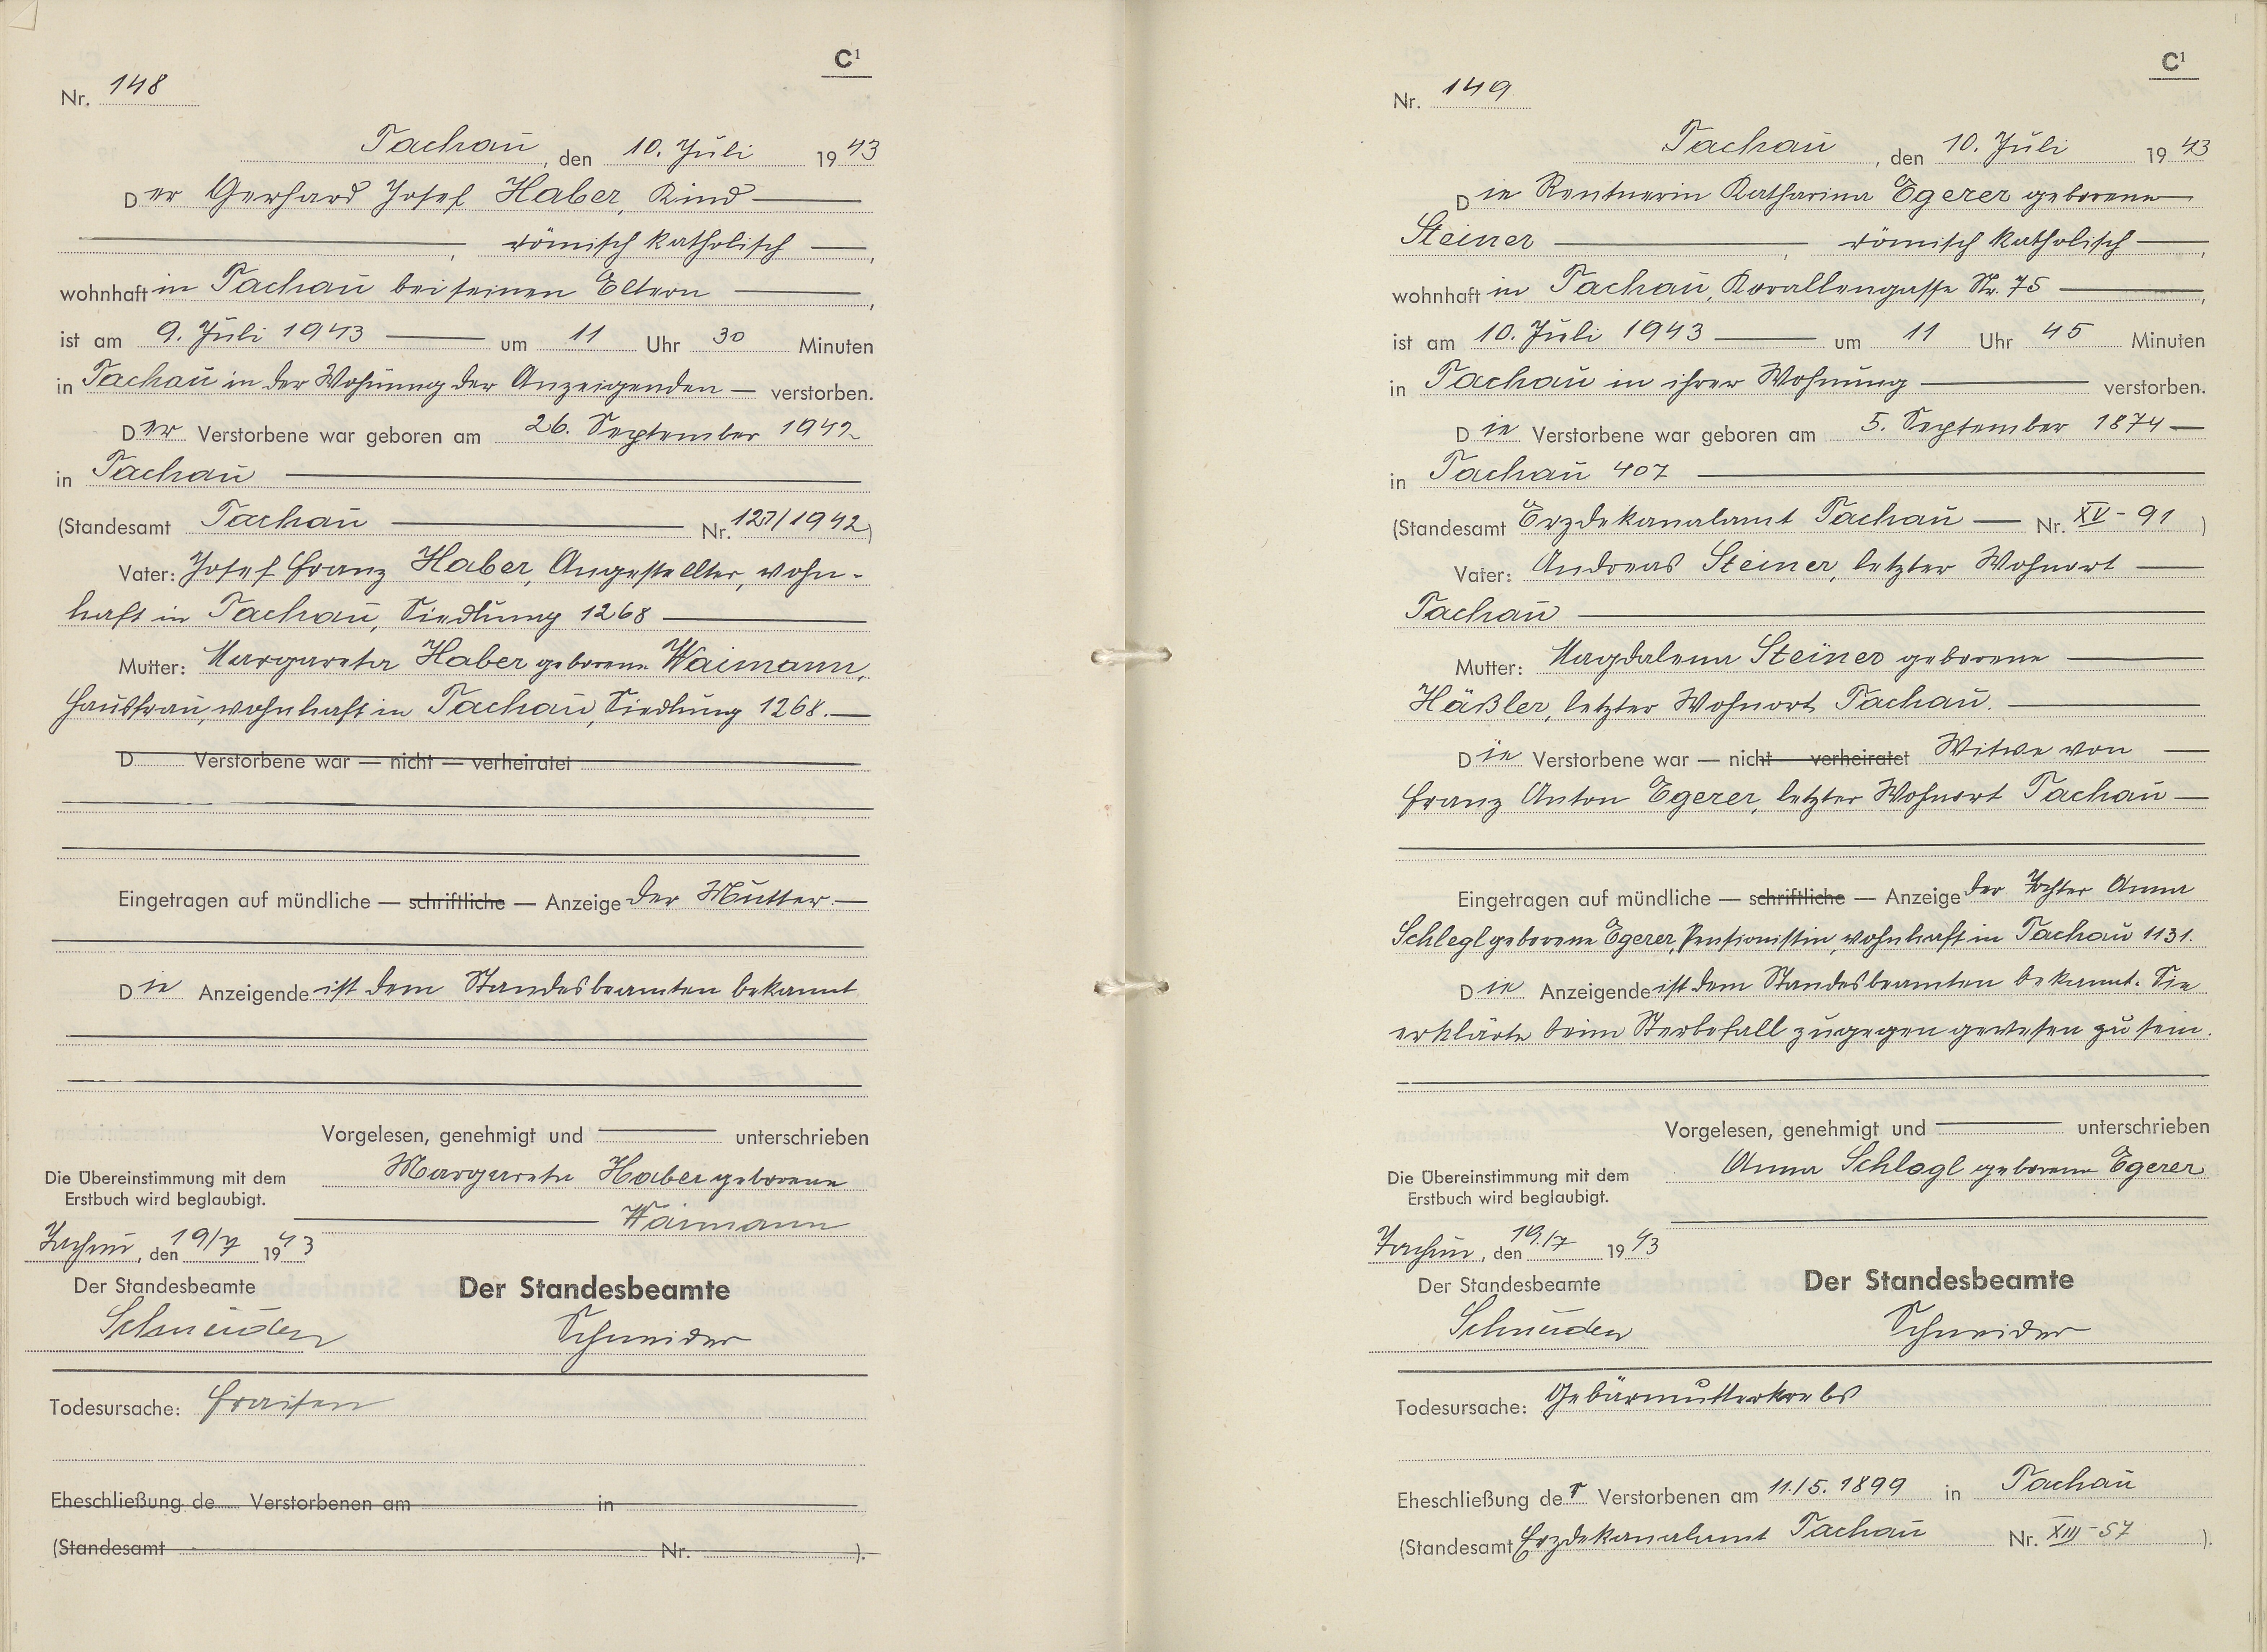 C¹
Nr. 148
Tachau, den 10. Juli 1943
Der Gerhard Josef Haber, Kind
, römisch katholisch ,
wohnhaft in Tachau bei seinen Eltern ,
ist am 9. Juli 1943 um 11 Uhr 30 Minuten
in Tachau in der Wohnung der Anzeigenden — verstorben.
Der Verstorbene war geboren am 26. September 1942
in Tachau
(Standesamt Tachau Nr. 127/1942)
Vater: Josef Franz Haber, Angestellter, wohn-
haft in Tachau, Siedlung 1268
Mutter: Margareta Haber geborene Waimann,
Hausfrau, wohnhaft in Tachau, Siedlung 1268.
D Verstorbene war — nicht — verheiratet
Eingetragen auf mündliche — schriftliche — Anzeige der Mutter.
Die Anzeigende ist dem Standesbeamten bekannt
Vorgelesen, genehmigt und unterschrieben
Margareta Haber geborene
Waimann
Die Übereinstimmung mit dem
Erstbuch wird beglaubigt.
Tachau, den 19/7 1943
Der Standesbeamte
Schneider
Der Standesbeamte
Schneider
Todesursache: Fraisen
Eheschließung de Verstorbenen am in
(Standesamt Nr. ).
C¹
Nr. 149
Tachau, den 10. Juli 1943
Die Rentnerin Katharina Egerer geborene
Steiner , römisch katholisch ,
wohnhaft in Tachau, Korallengasse Nr. 75 ,
ist am 10. Juli 1943 um 11 Uhr 45 Minuten
in Tachau in ihrer Wohnung verstorben.
Die Verstorbene war geboren am 5. September 1874
in Tachau 407
(Standesamt Erzdekanalamt Tachau — Nr. XV - 91)
Vater: Andreas Steiner, letzter Wohnort
Tachau
Mutter: Magdalena Steiner geborene
Häßler, letzter Wohnort Tachau.
Die Verstorbene war — nicht — verheiratet Witwe von
Franz Anton Egerer, letzter Wohnort Tachau
Eingetragen auf mündliche — schriftliche — Anzeige der Tochter Anna
Schlegl geborene Egerer, Pensionistin, wohnhaft in Tachau 1131.
Die Anzeigende ist dem Standesbeamten bekannt. Sie
erklärte beim Sterbefall zugegen gewesen zu sein.
Vorgelesen, genehmigt und unterschrieben
Anna Schlegl geborene Egerer
Die Übereinstimmung mit dem
Erstbuch wird beglaubigt.
Tachau, den 19./7 1943
Der Standesbeamte
Schneider
Der Standesbeamte
Schneider
Todesursache: Gebärmutterkrebs
Eheschließung der Verstorbenen am 11./5. 1899 in Tachau
(Standesamt Erzdekanalamt Tachau Nr. XIII - 57 ).